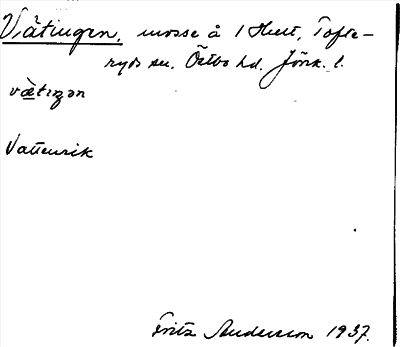 Vätingen. mosse å 1 Hult, Tofte-
ryds sn. Östbo hd. Jönk. l.
vàtıŋən
Vattenrik
Fritz Andersson 1937.